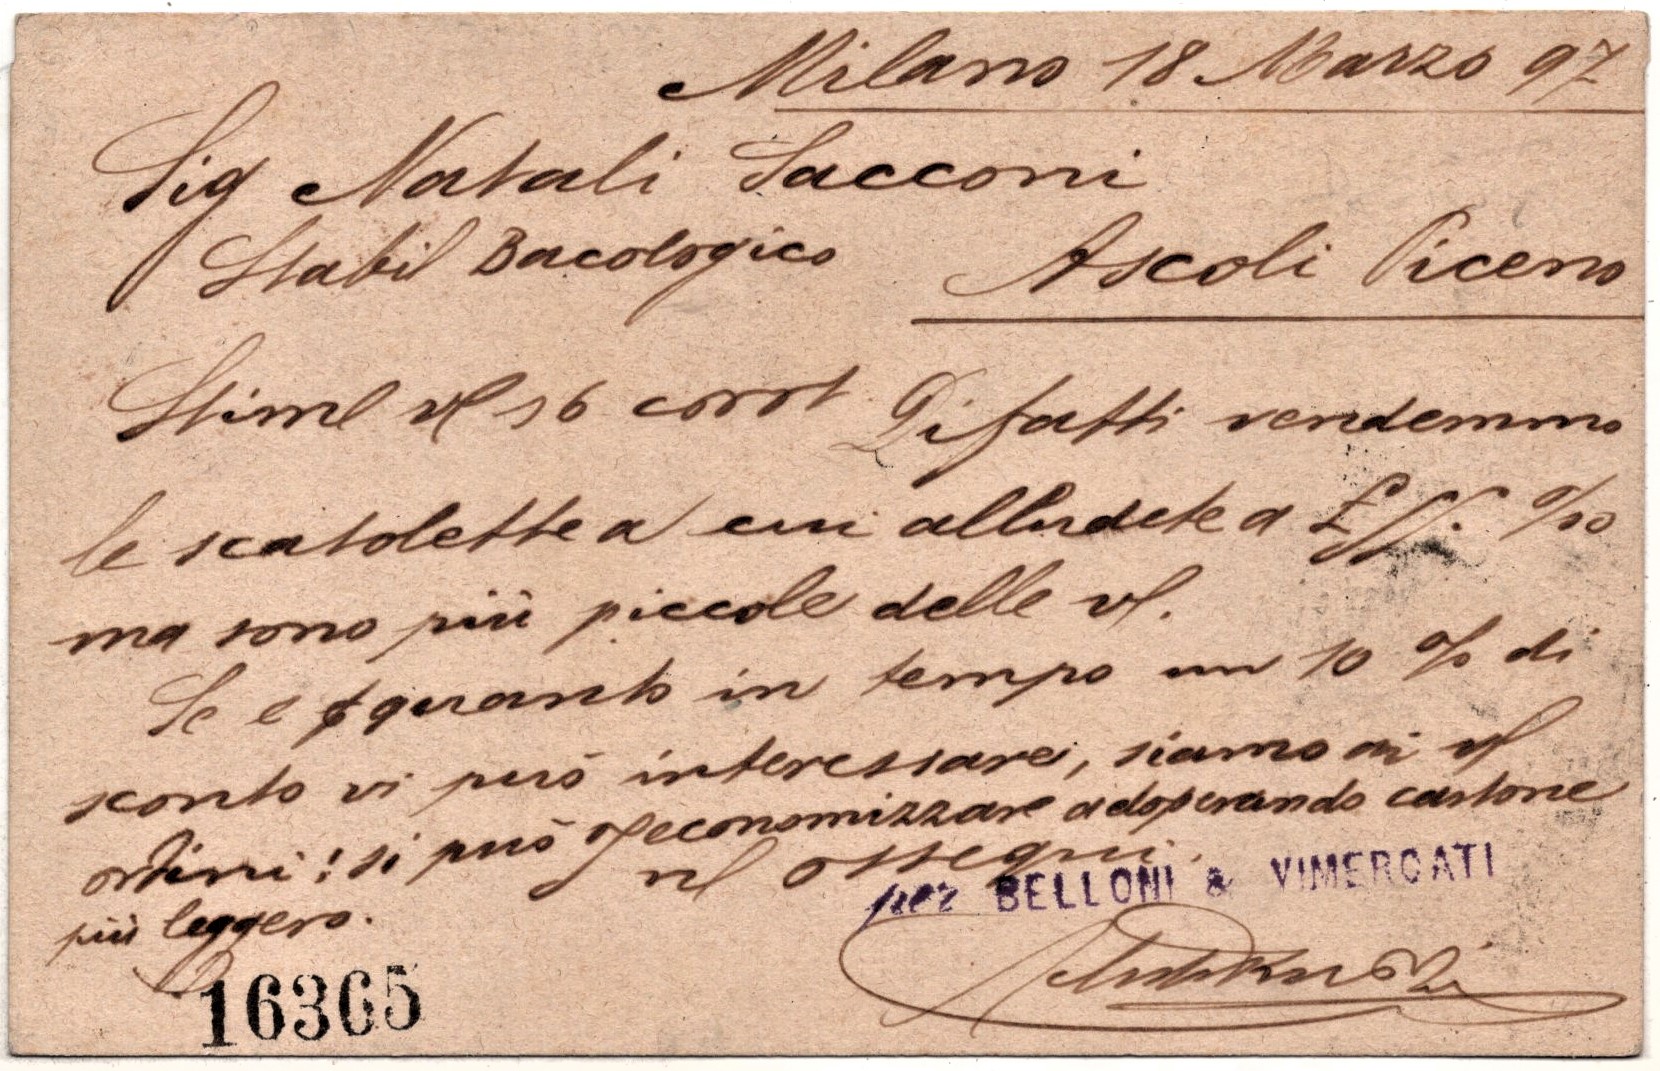 Milano 18 Marzo 97
Sig Natali Sacconi
Stabil Bacologico Ascoli Piceno
Stim vs 16 corrt. Difatti vendemmo
le scatolette a cui alludete a £ %00
ma sono più piccole delle vs.
Se e quanto in tempo un 10 % di
sconto vi può interessare, siamo ai vs
ordini! si può economizzare adoperando cartone
più leggero.
vs ossequi.
per BELLONI & VIMERCATI
16365